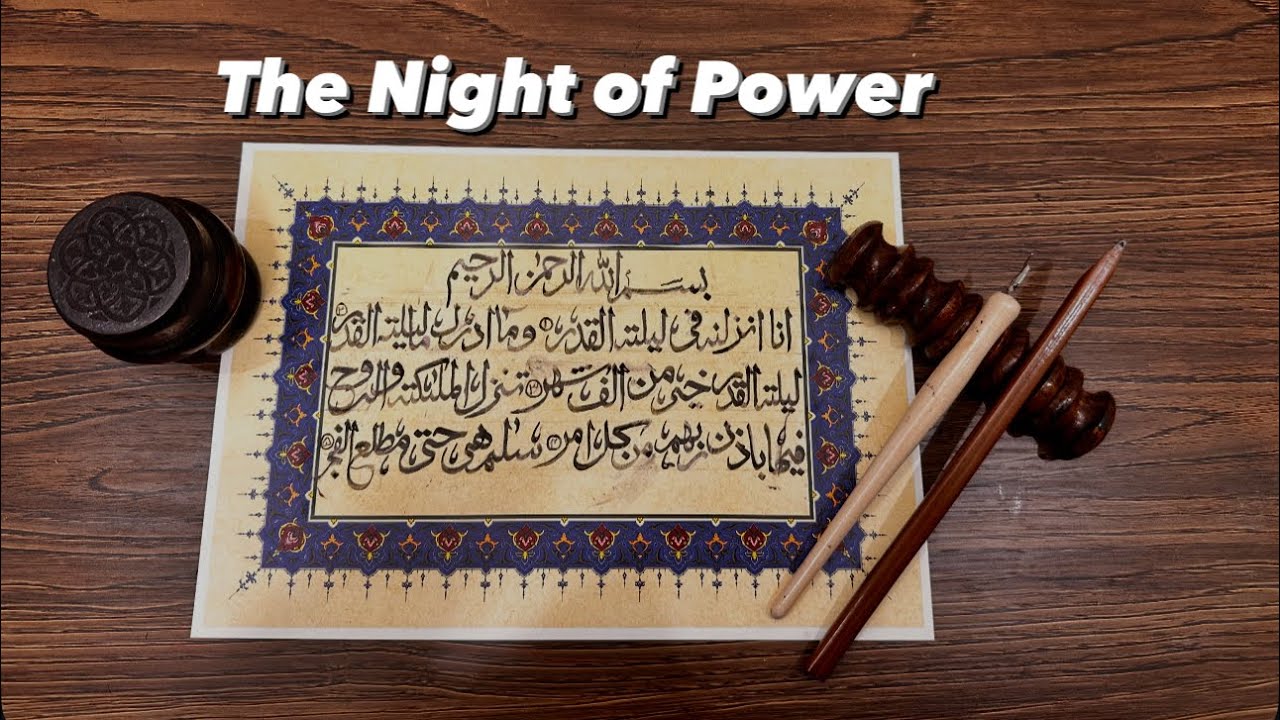 The Night of Power
بسم الله الرحمن الرحيم
انا انزلنه فى ليلة القدر ١ وما ادرىك ما ليلة القدر ٢
ليلة القدر خير من الف شهر ٣ تنزل الملئكة والروح
فيها باذن ربهم من كل امر ٤ سلم هى حتى مطلع الفجر ٥